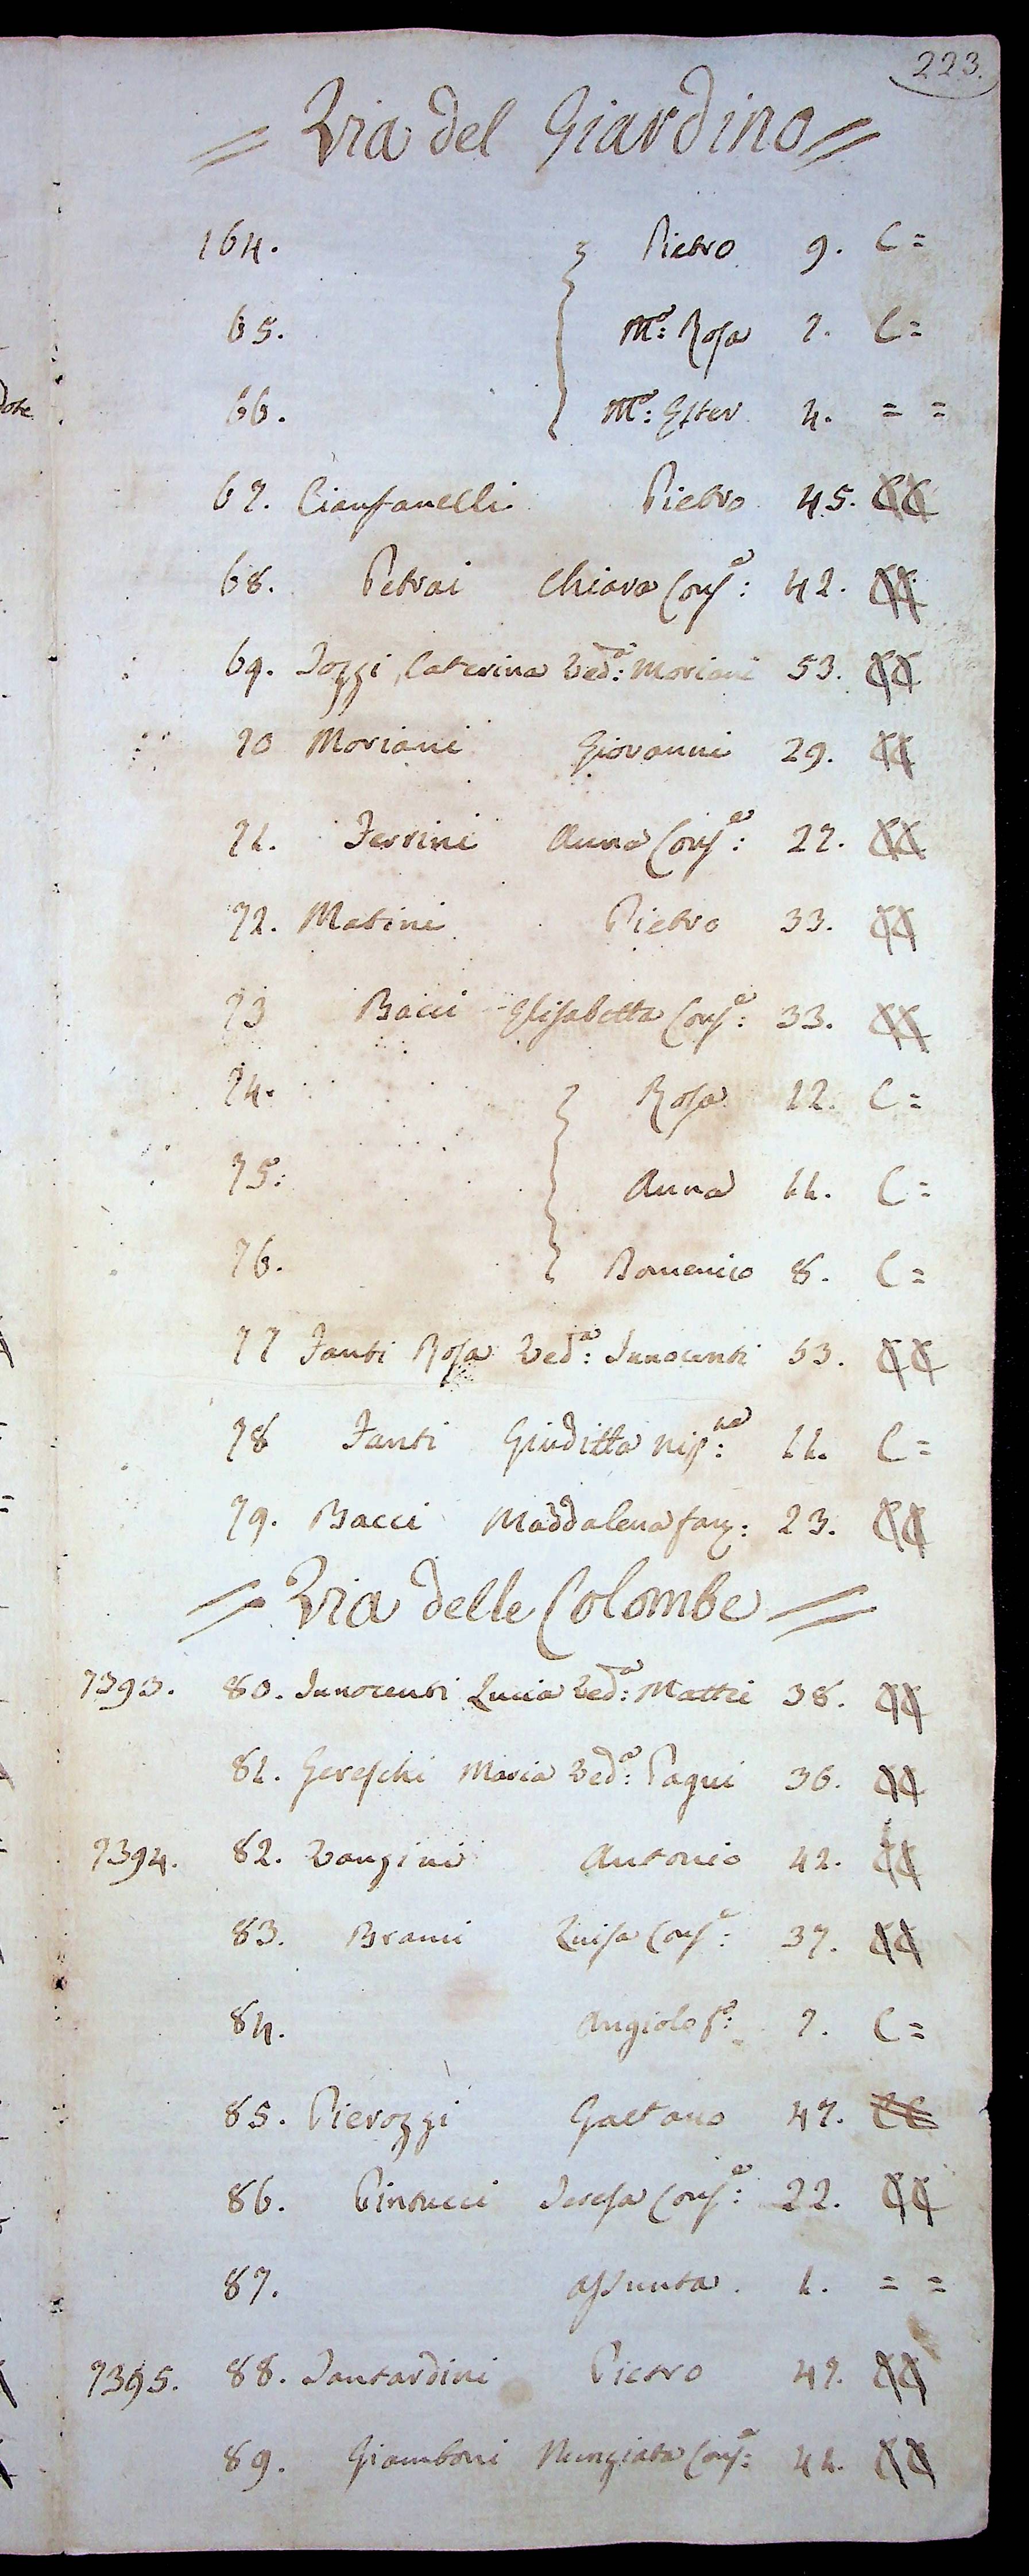 223.
= Via del Giardino =
164. Pietro 9. C =
65. M.a: Rosa 7. C =
66. M.a: Ester 4. = =
67. Cianfanelli Pietro 45. CC
68. Petrai Chiara Cons.e: 42. CC
69. Tozzi, Caterina Ved.a: Moriani 53. CC
70 Moriani Giovanni 29. CC
71. Ferrini Anna Cons.e: 27. CC
72. Matini Pietro 33. CC
73 Bacci Elisabetta Cons.e: 33. CC
74. Rosa 12. C =
75: Anna 11. C =
76. Domenico 8. C =
77 Fanti Rosa Ved.a: Innocenti 53. CC
78 Fanti Giuditta nip.na: 11. C =
79. Bacci Maddalena fanz: 23. CC
= Via delle Colombe =
7393. 80. Innocenti Lucia Ved.a: Mattii 38. CC
81. Gereschi Maria Ved.a: Pagni 36. CC
7394. 82. Vangini Antonio 42. CC
83. Brami Luisa Cons.e: 37. CC
84. Angiolo f.o: 7. C =
85. Pierozzi Gaetano 47. CC
86. Pintucci Teresa Cons.e: 22. CC
87. Assunta. 1. = =
7395. 88. Santardini Pietro 47. CC
89. Giamboni Nunziata Cons.e: 41. CC